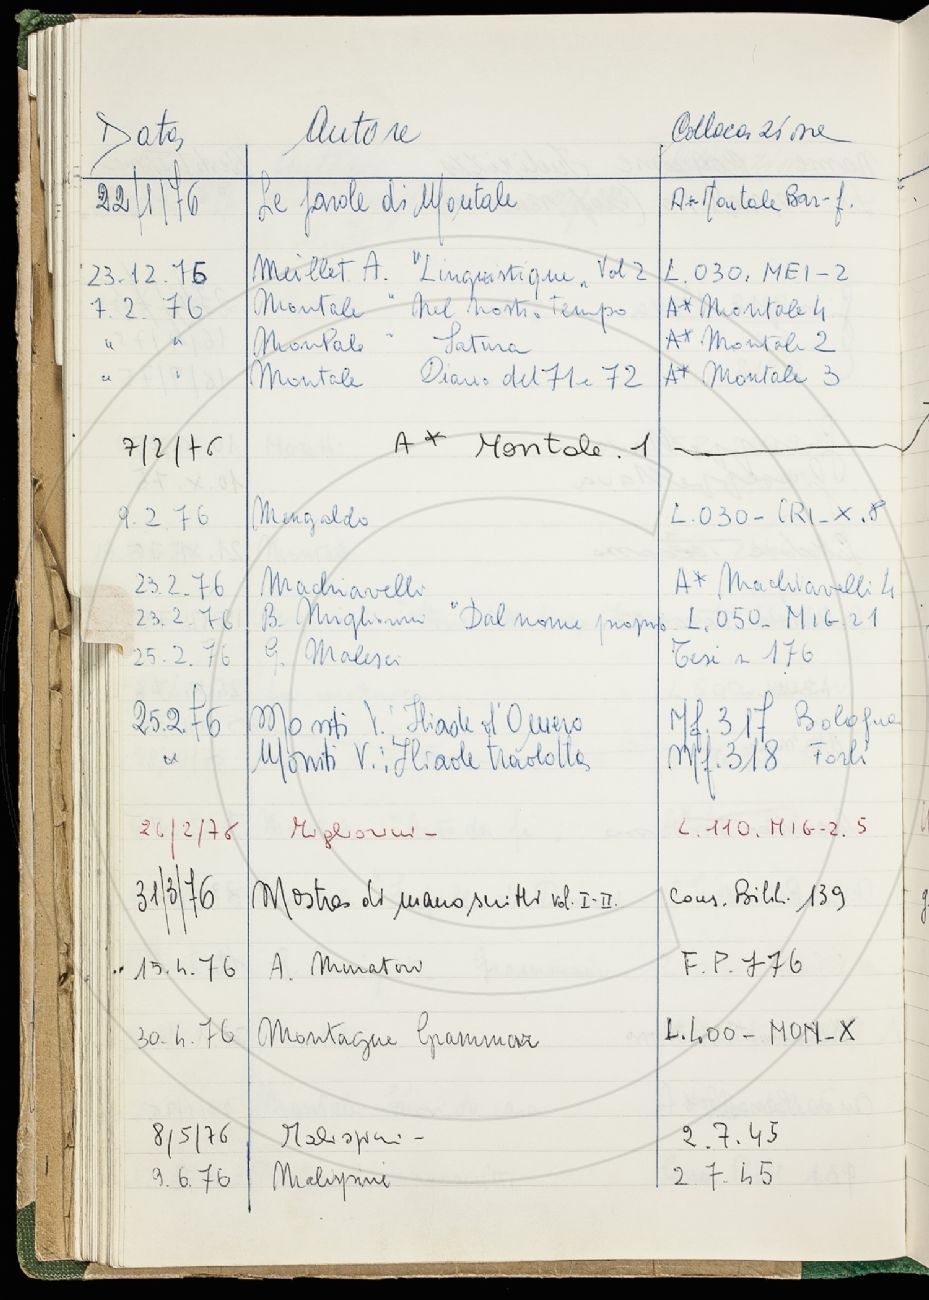 Data Autore Collocazione
22/1/76 Le parole di Montale A* Montale Bar-f.
23.12.75 Meillet A. "Linguistique" Vol 2 L.030. MEI-2
7.2.76 Montale " Nel nostro Tempo A* Montale 4
" " Montale " Satura A* Montale 2
" " Montale Diario del 71 e 72 A* Montale 3
7/2/76 A* Montale. 1
9.2.76 Mengaldo L.030-CRI-X.8
23.2.76 Machiavelli A* Machiavelli 4
23.2.76 B. Migliorini "Dal nome proprio L.050-MIG-21
25.2.76 G. Malesci Tesi n 176
25.2.76 Monti V.: Iliade d'Omero Mf.317 Bologna
" Monti V.: Iliade tradotta Mf.318 Forlì
26/2/76 Migliorini- L.110.MIG-2.5
31/3/76 Mostra di manoscritti vol. I-II. Cons. Bibl. 139
15.4.76 A. Muratori F.P.776
30.4.76 Montague Grammar L.400-MON-X
8/5/76 Malispini- 2.7.45
9.6.76 Malispini 2.7.45